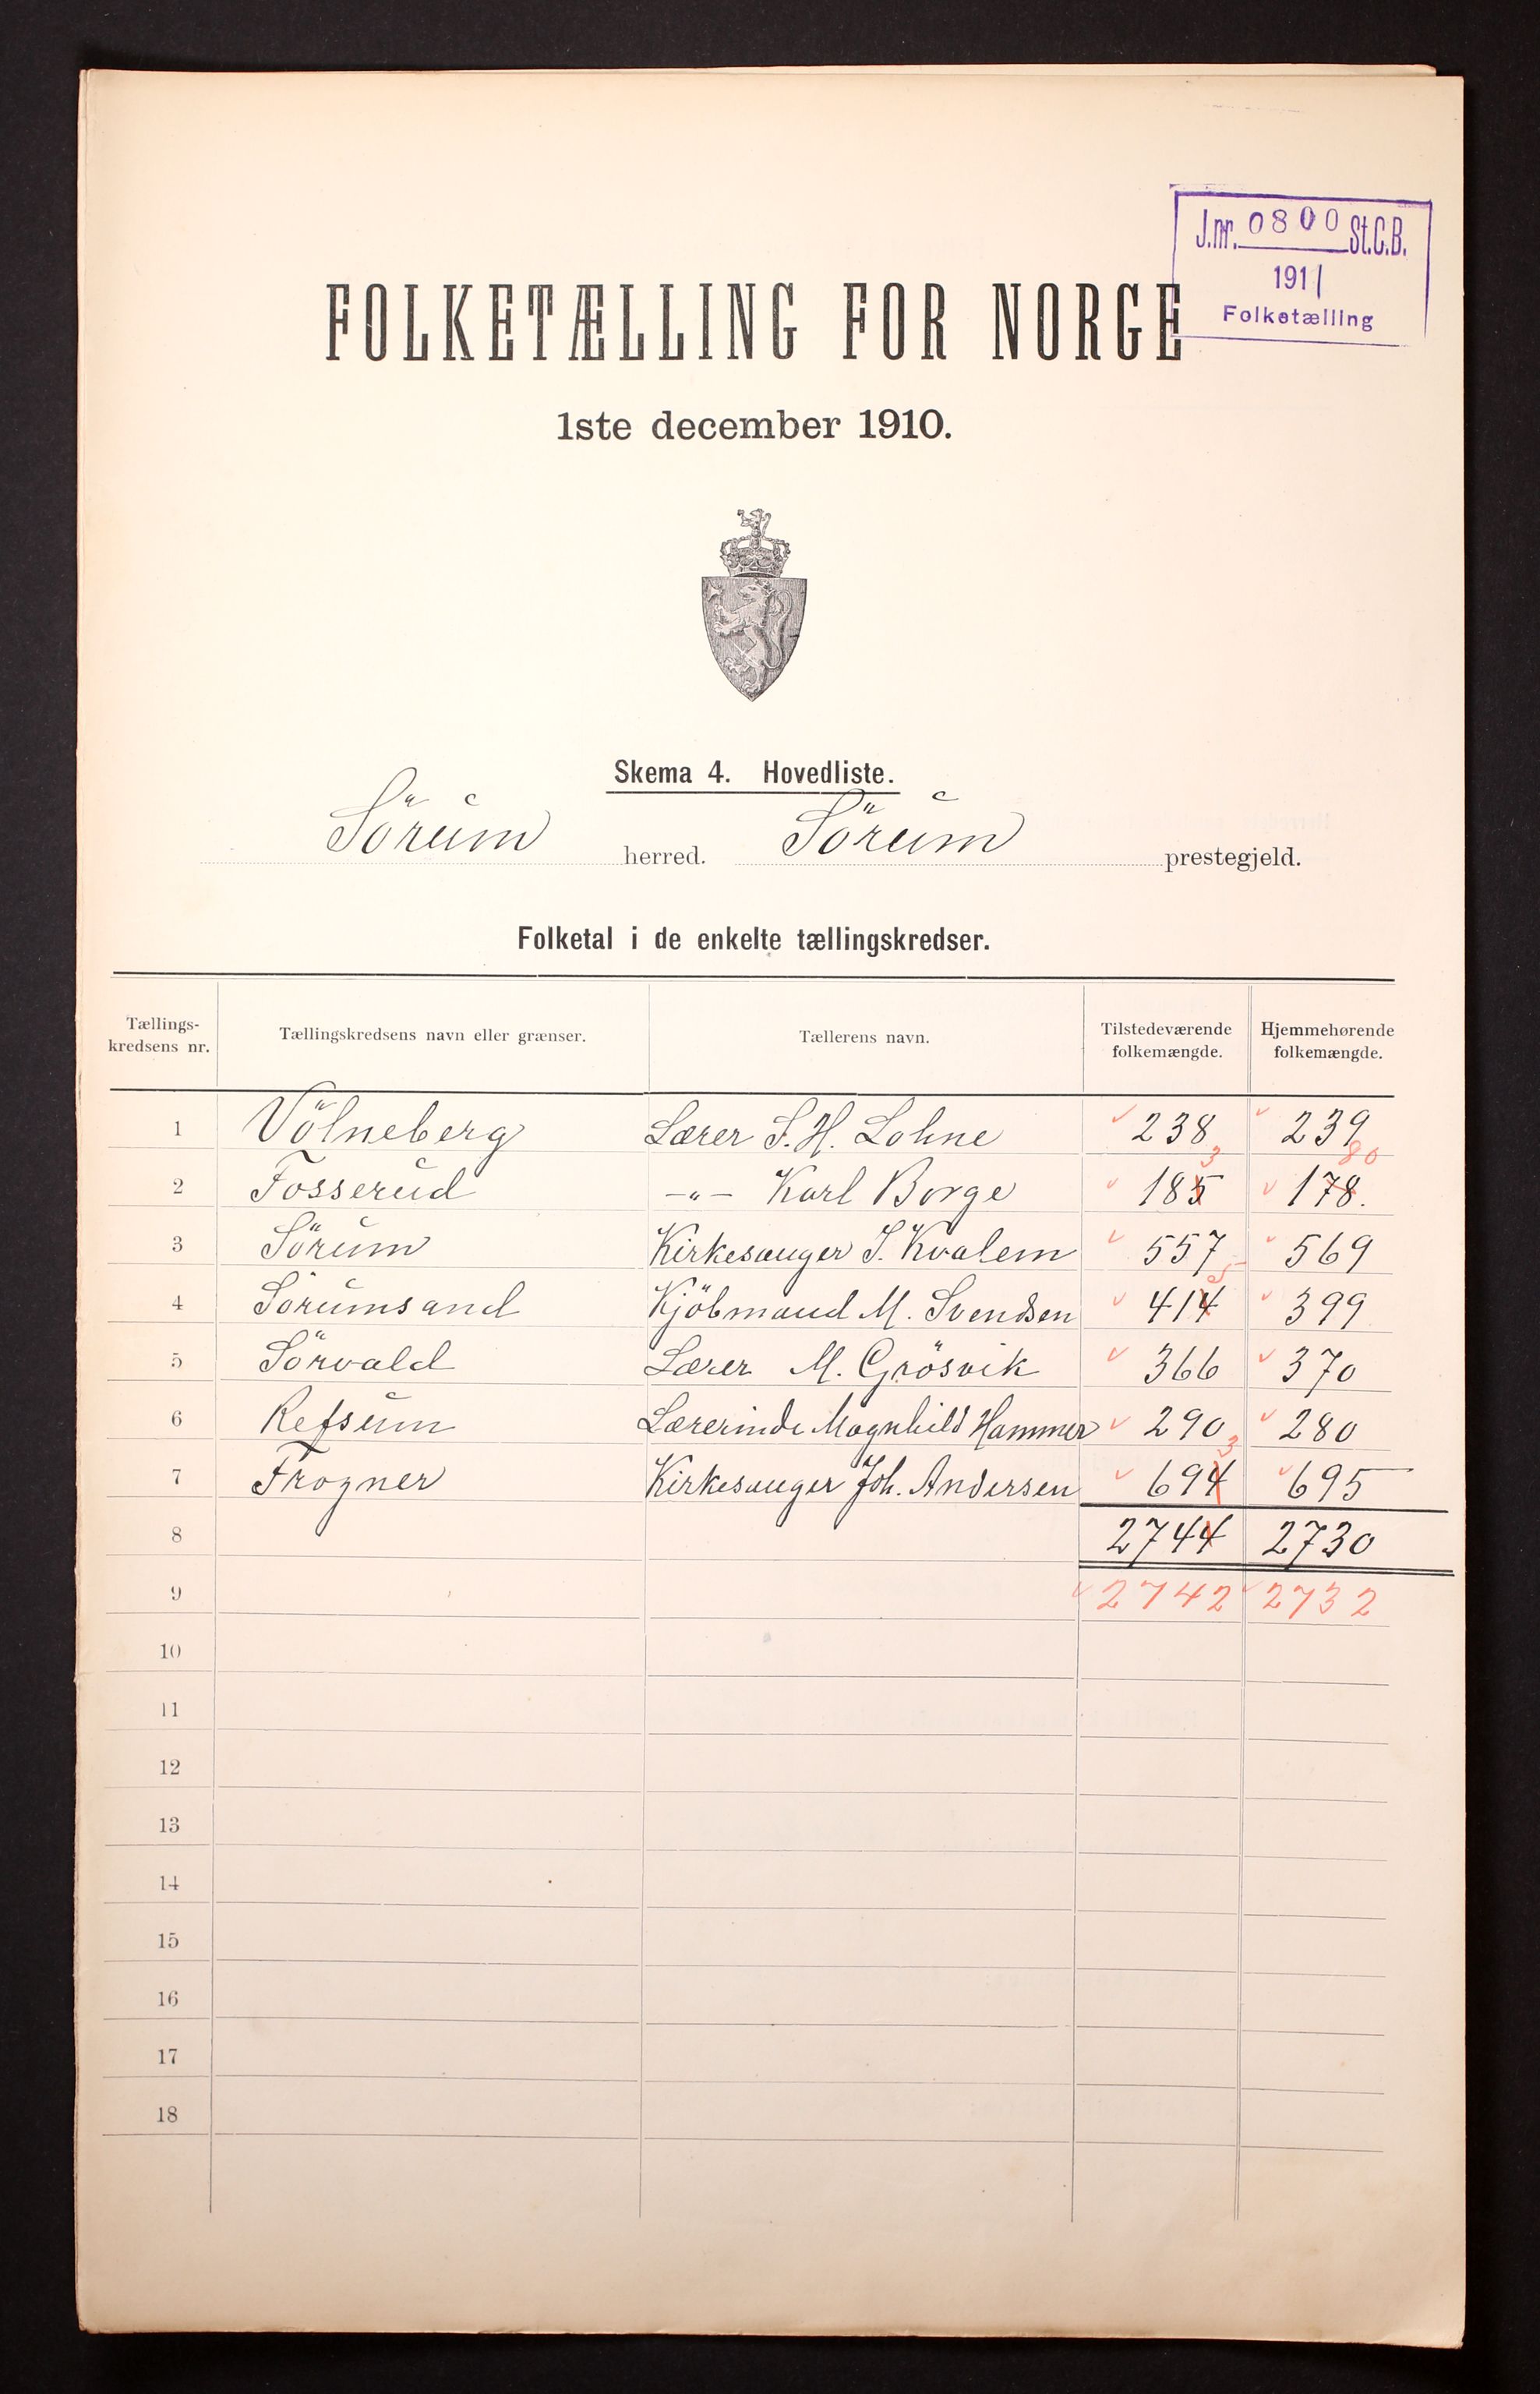 J.nr. 0800 St.C.B.
1911
Folketælling
FOLKETÆLLING FOR NORGE
1ste december 1910.
Skema 4. Hovedliste.
Sörum herred. Sörum prestegjeld.
Folketal i de enkelte tællingskredser.
Tællings-kredsens nr. Tællingskredsens navn eller grænser. Tællerens navn. Tilstedeværende folkemængde. Hjemmehørende folkemængde.
1 Völneberg Lærer S. H. Lohne 238 239
3 80
2 Fosserud -"- Karl Borge 185 178.
3 Sörum Kirkesanger I. Kvalem 557 569
5
4 Sörumsand Kjöbmand M. Svendsen 414 399
5 Sörvald Lærer M. Grösvik 366 370
6 Refsum Lærerinde Magnhild Hammer 290 280
3
7 Frogner Kirkesanger Joh. Andersen 694 695
8 2744 2730
9 2742 2732
10
11
12
13
14
15
16
17
18